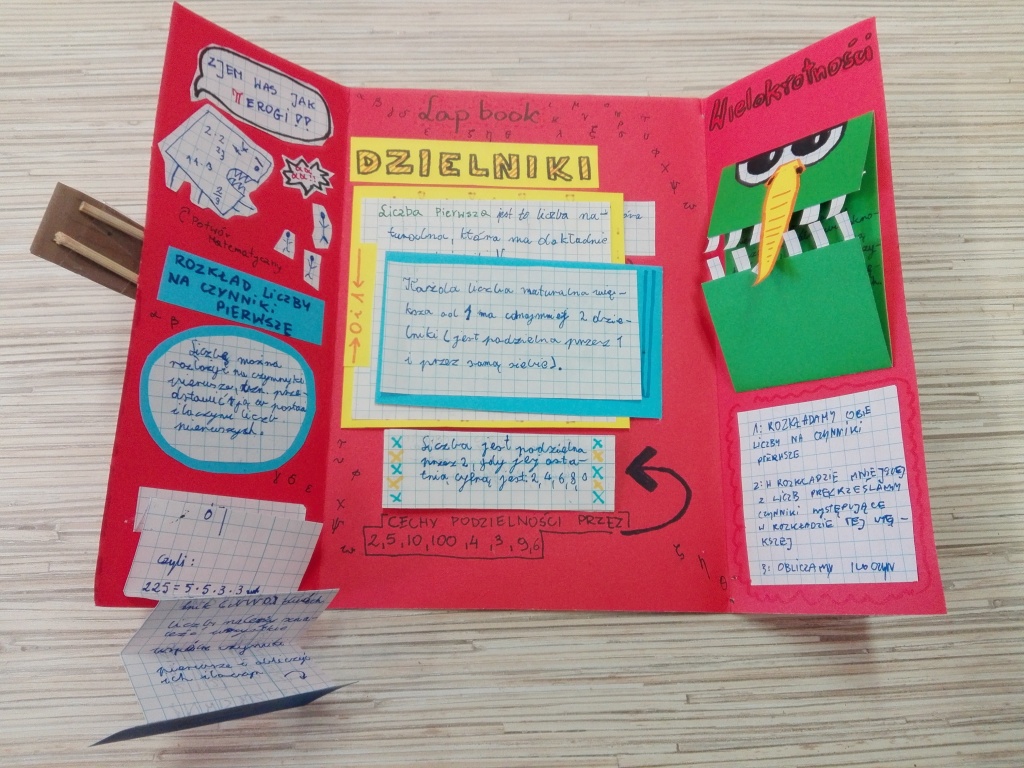 ZJEM WAS JAK
TEROGI??
2:2
Potwór
Matematyczny
ROZKŁAD LICZBY
NA CZYNNIKI
PIERWSZE
Liczbę można
rozłożyć na czynniki
pierwsze, tzn. prze-
dstawić ją w postaci
iloczynu liczb
pierwszych.
czyli:
225 = 5·5·3·3
liczb należy
wspólne czynniki
pierwsze i obliczyć
ich iloczyn
Lap book
DZIELNIKI
Liczba pierwsza jest to liczba na-
turalna, która ma dokładnie
0 i 1
Każda liczba naturalna wię-
ksza od 1 ma conajmniej 2 dzie-
lniki (jest podzielna przez 1
i przez samą siebie).
Liczba jest podzielna
przez 2, gdy jej osta-
tnią cyfrą jest: 2, 4, 6, 8, 0
CECHY PODZIELNOŚCI PRZEZ
2, 5, 10, 100, 4, 3, 9, 6
Wielokrotności
1: ROZKŁADAMY OBIE
LICZBY NA CZYNNIKI
PIERWSZE
2: W ROZKŁADZIE MNIEJSZEJ
Z LICZB PRZEKREŚLAMY
CZYNNIKI WYSTĘPUJĄCE
W ROZKŁADZIE TEJ WIĘ-
KSZEJ
3: OBLICZAMY ILOCZYN